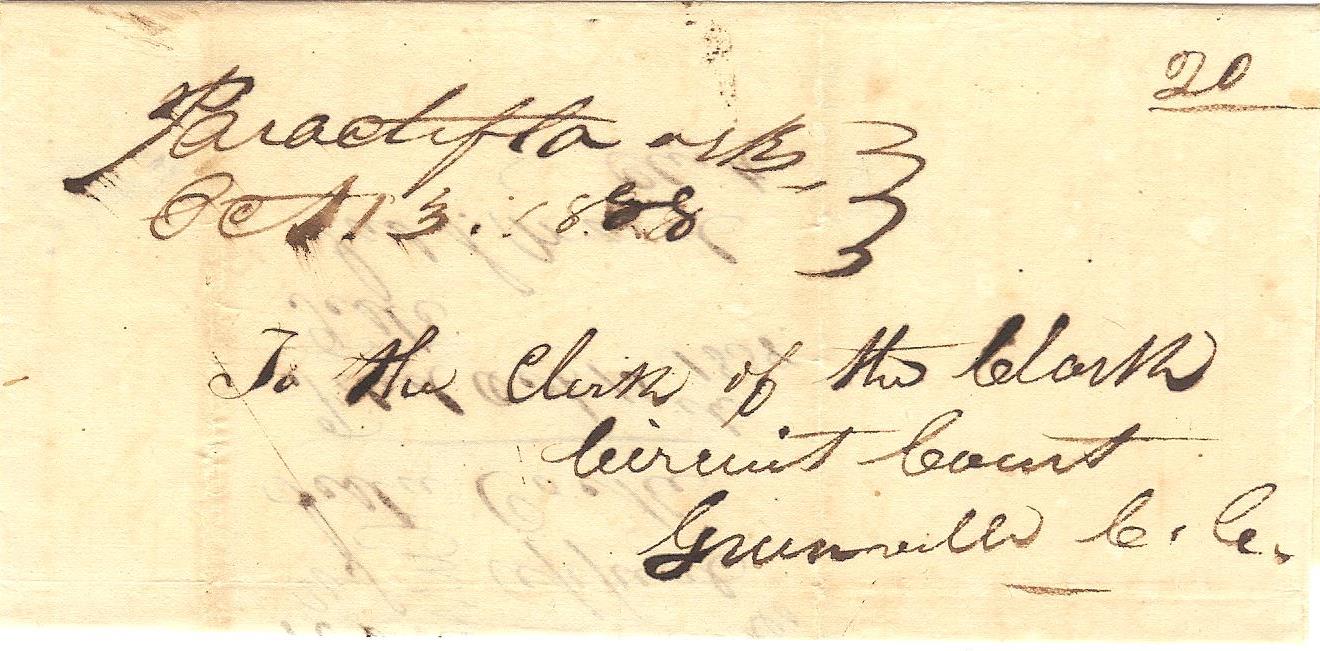 20
Paraclifta Arks,
Oct 13. 1838
To the Clerk of the Clark
Circuit Court
Greenville C. Co.